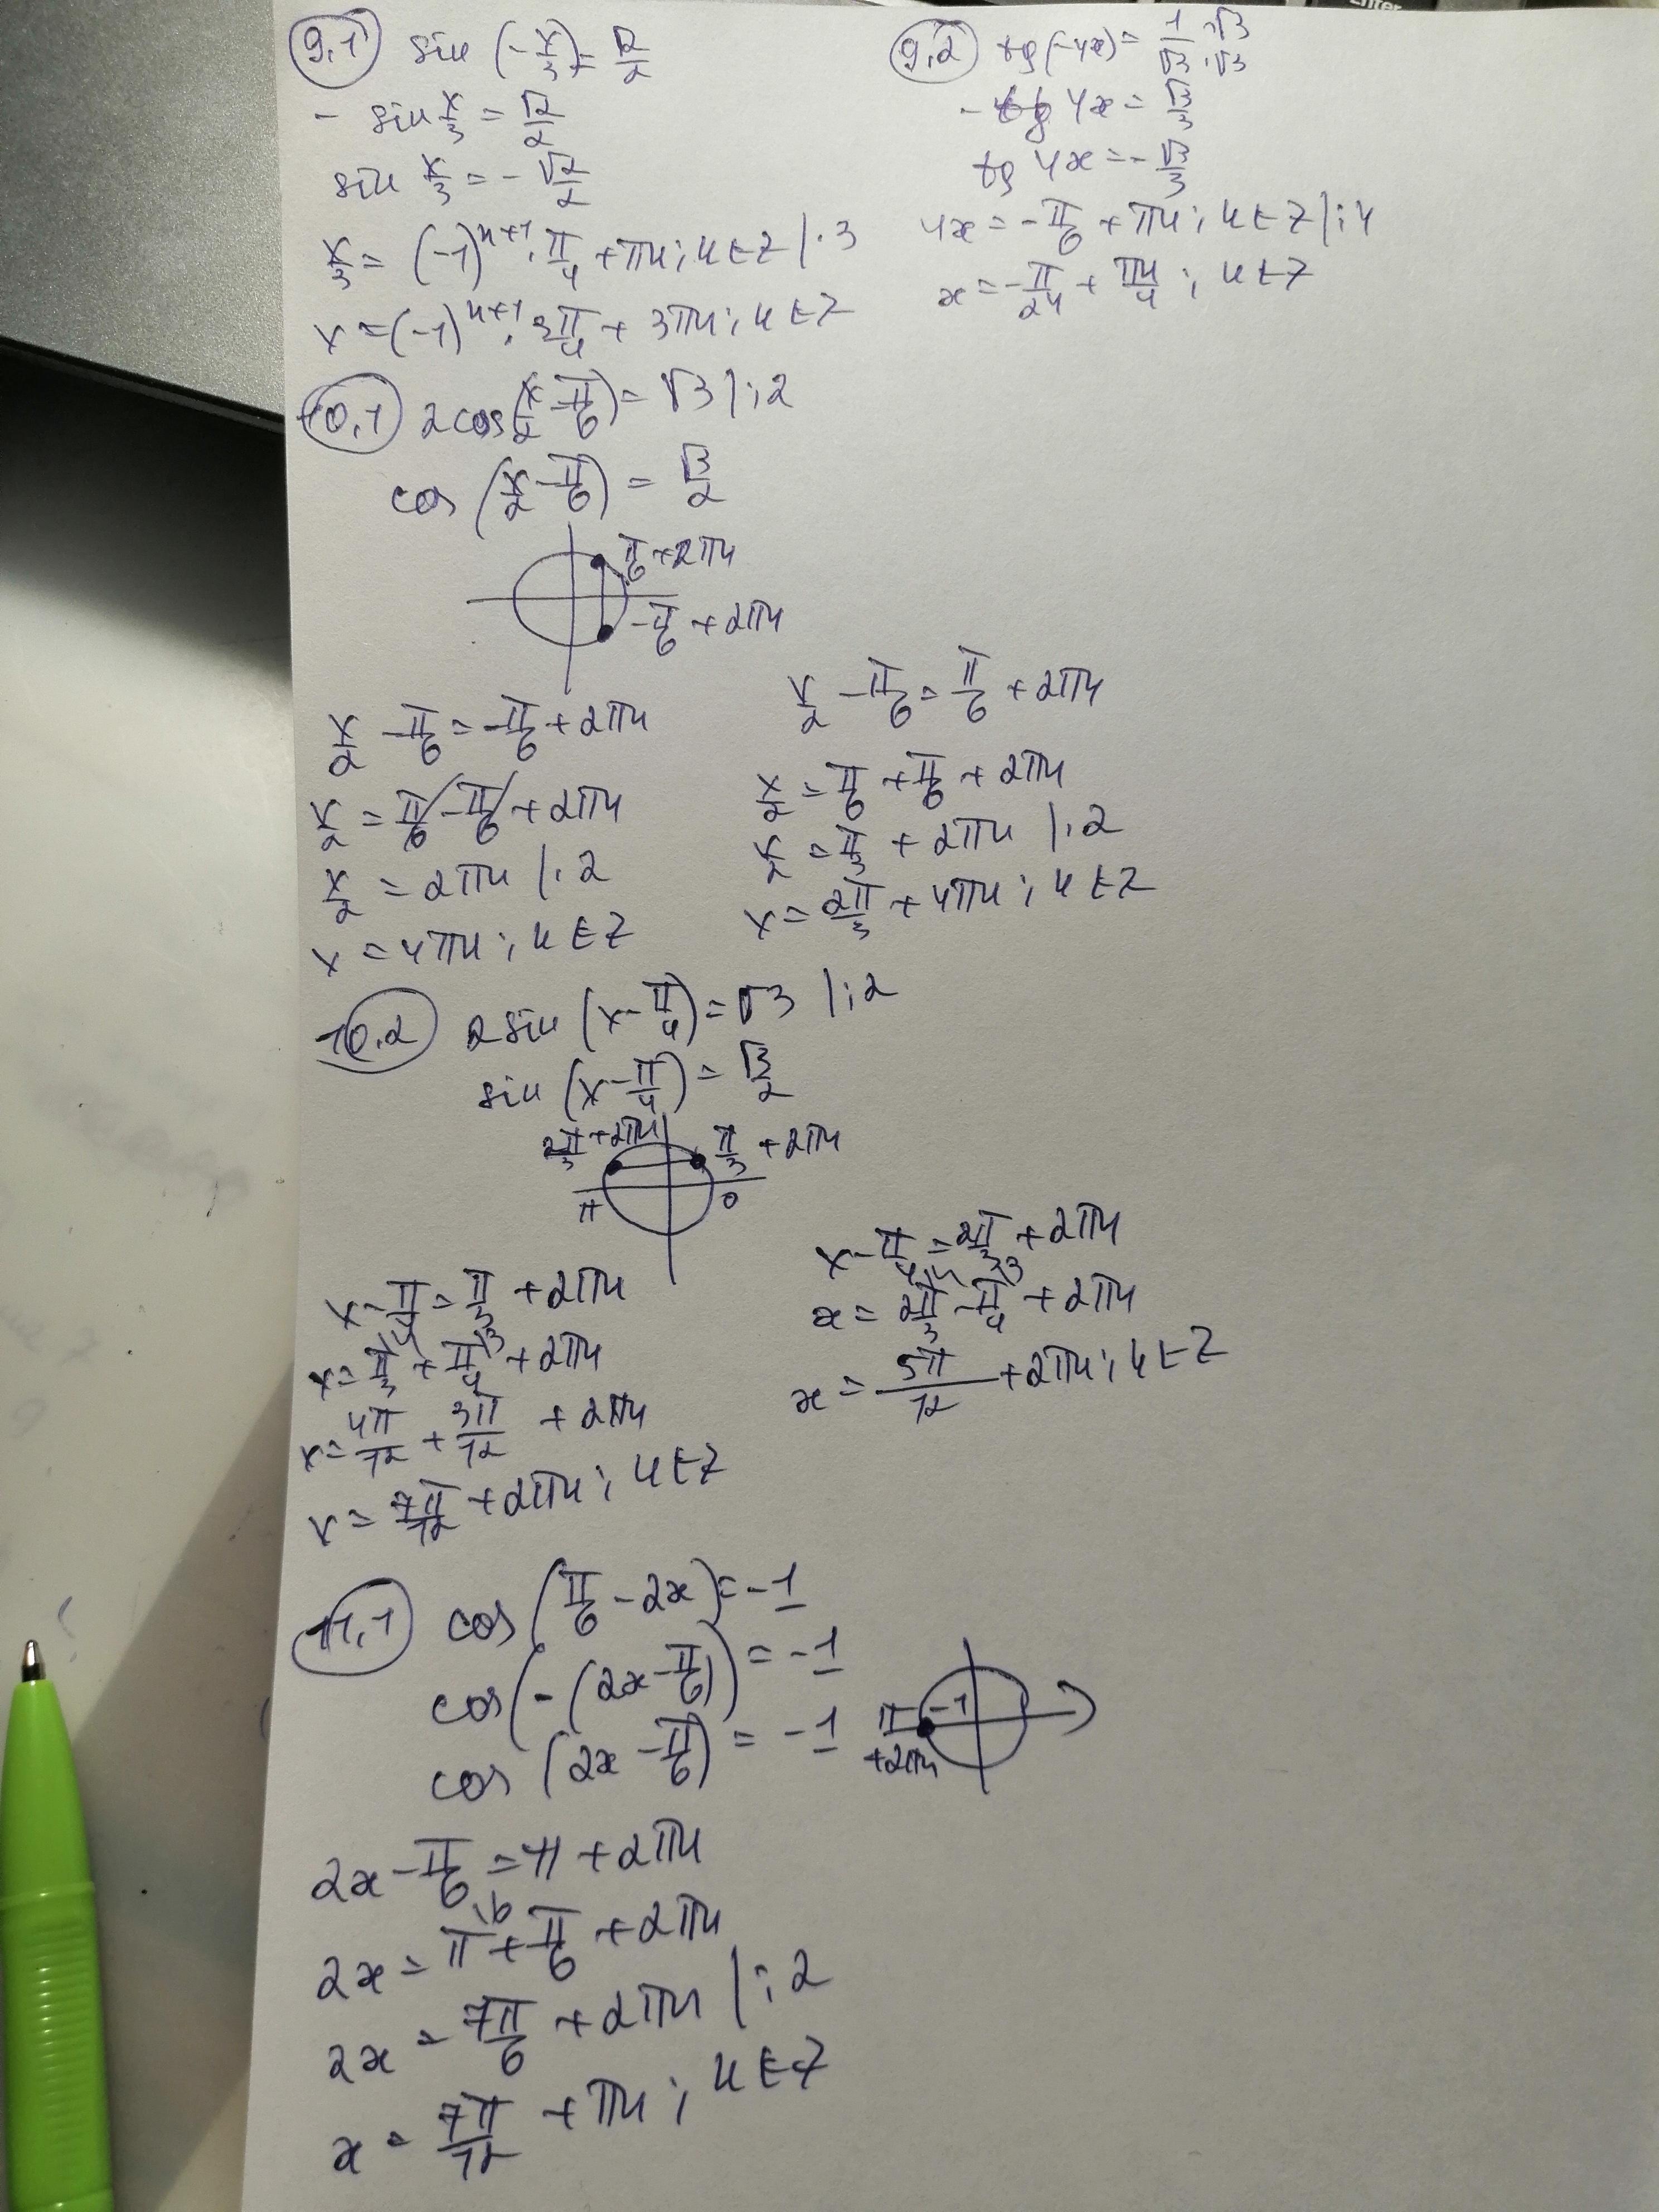 9,1 sin (-x/3) = √2/2
- sin x/3 = √2/2
sin x/3 = - √2/2
x/3 = (-1)^(n+1) · π/4 + πn; n∈Z |·3
x = (-1)^(n+1) · 3π/4 + 3πn; n∈Z
9,2 tg(-4x) = 1/√3 ·√3/·√3
- tg 4x = √3/3
tg 4x = - √3/3
4x = - π/6 + πn; n∈Z |:4
x = - π/24 + πn/4; n∈Z
10,1 2cos(x/2 - π/6) = √3 |:2
cos (x/2 - π/6) = √3/2
π/6 + 2πn
- π/6 + 2πn
x/2 - π/6 = - π/6 + 2πn
x/2 = π/6 - π/6 + 2πn
x/2 = 2πn |·2
x = 4πn; n∈Z
x/2 - π/6 = π/6 + 2πn
x/2 = π/6 + π/6 + 2πn
x/2 = π/3 + 2πn |·2
x = 2π/3 + 4πn; n∈Z
10,2 2sin (x - π/4) = √3 |:2
sin (x - π/4) = √3/2
2π/3 + 2πn π/3 + 2πn
π 0
x - π/4 = π/3 + 2πn
x = π/3 + π/4 + 2πn
x = 4π/12 + 3π/12 + 2πn
x = 7π/12 + 2πn; n∈Z
x - π/4 = 2π/3 + 2πn
x = 2π/3 - π/4 + 2πn
x = 5π/12 + 2πn; n∈Z
11,1 cos (π/6 - 2x) = -1
cos (-(2x - π/6)) = -1
cos (2x - π/6) = -1
π -1
+2πn
2x - π/6 = π + 2πn
2x = π + π/6 + 2πn
2x = 7π/6 + 2πn |:2
x = 7π/12 + πn; n∈Z